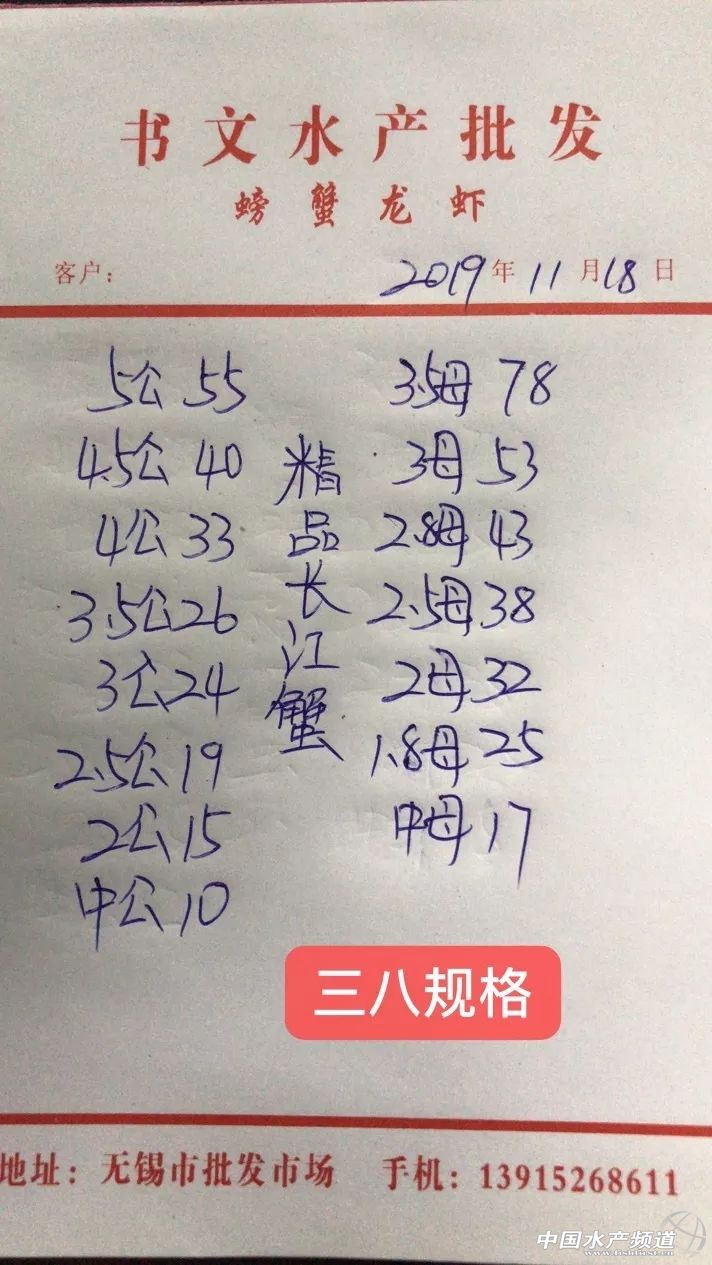 书文水产批发
螃蟹龙虾
客户： 2019年11月18日
5公 55
4.5公 40
4公 33
3.5公 26
3公 24
2.5公 19
2公 15
中公 10
精品长江蟹
3.5母 78
3母 53
2.8母 43
2.5母 38
2母 32
1.8母 25
中母 17
三八规格
地址：无锡市批发市场 手机：13915268611
中国水产频道
www.fishfirst.cn